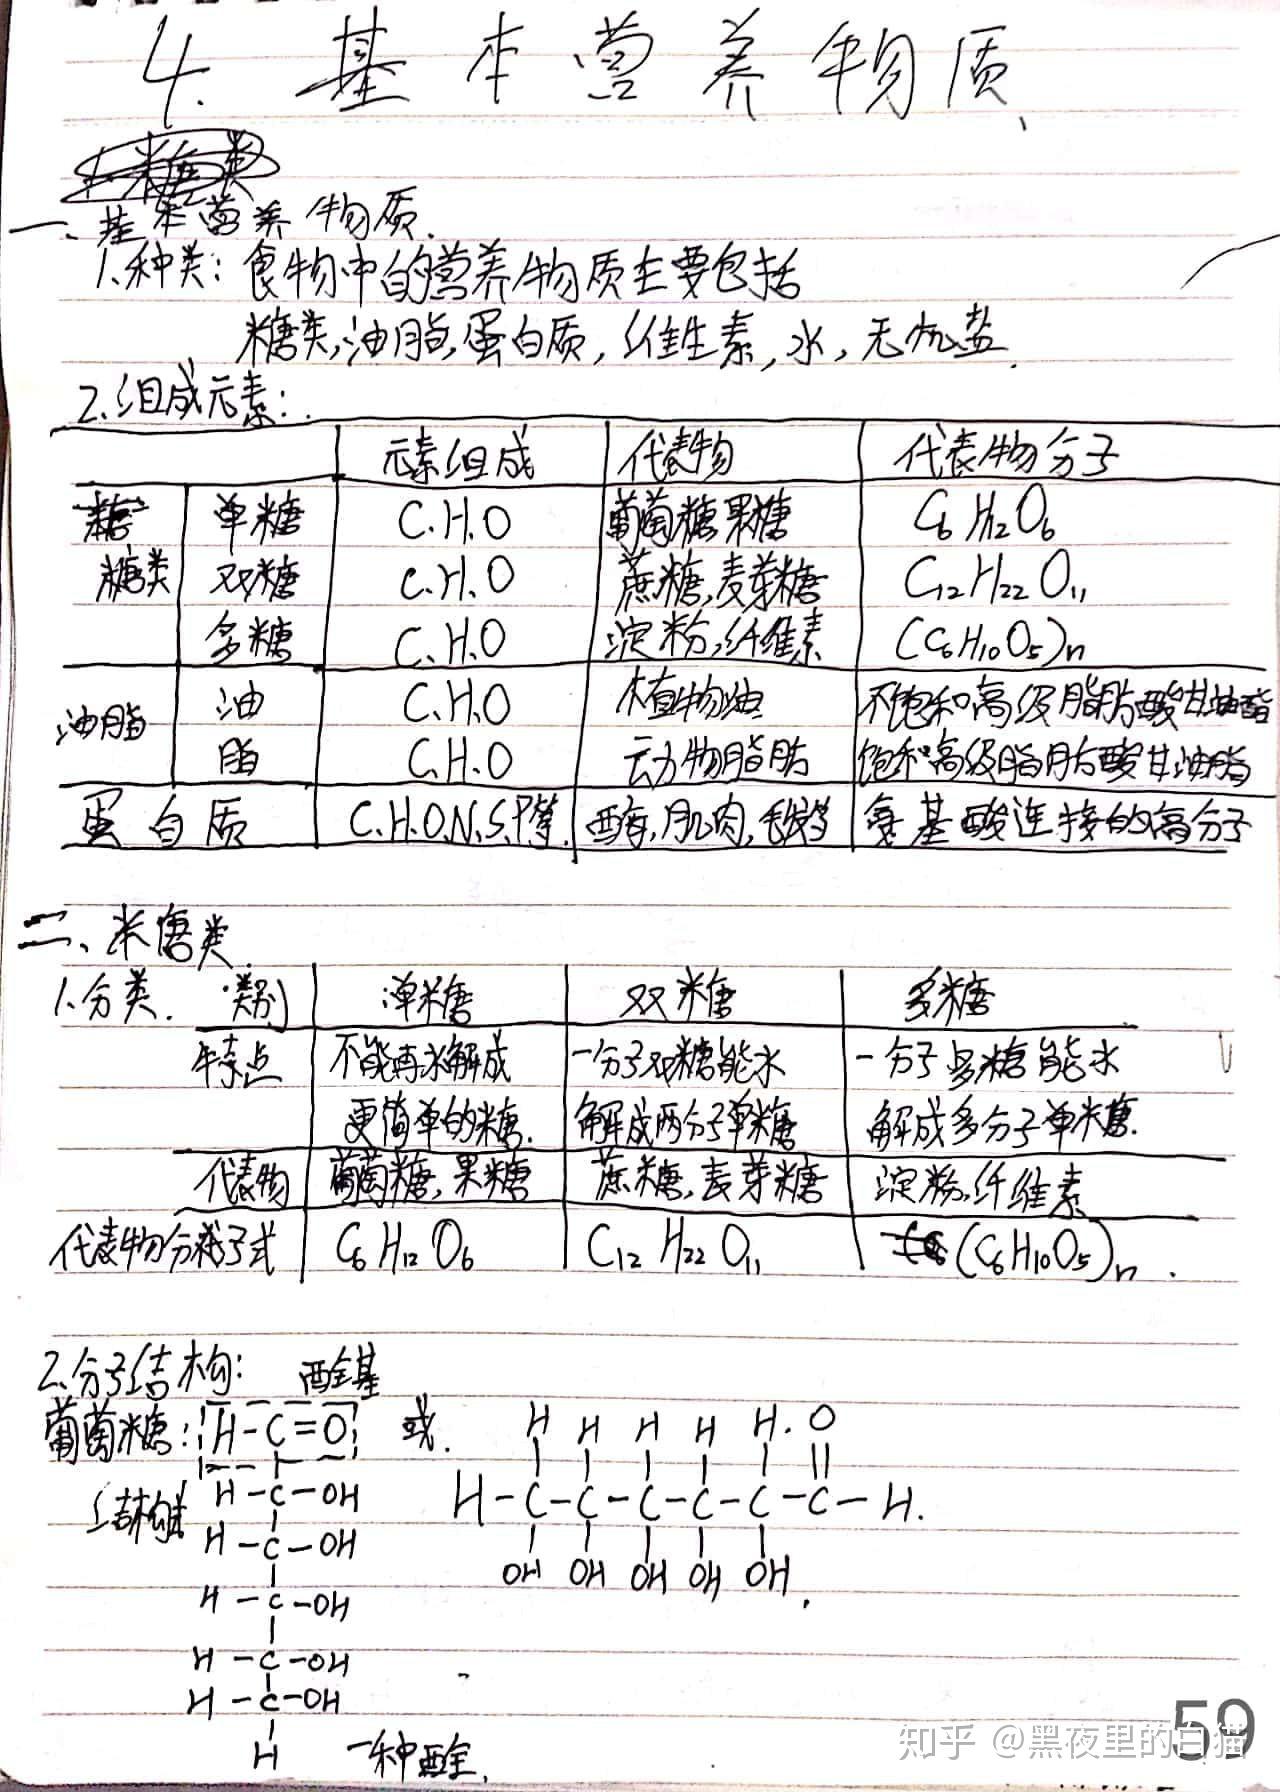 4. 基本营养物质
一、基本营养物质.
1.种类:食物中的营养物质主要包括
糖类,油脂,蛋白质,维生素,水,无机盐.
2.组成元素:
元素组成 代表物 代表物分子
糖类 单糖 C.H.O 葡萄糖果糖 C6H12O6
双糖 C.H.O 蔗糖,麦芽糖 C12H22O11
多糖 C.H.O 淀粉,纤维素 (C6H10O5)n
油脂 油 C.H.O 植物油 不饱和高级脂肪酸甘油酯
脂 C.H.O 动物脂肪 饱和高级脂肪酸甘油脂
蛋白质 C.H.O.N.S.P等. 酶,肌肉,毛发等 氨基酸连接的高分子
二、糖类.
1.分类. 类别 单糖 双糖 多糖
特点 不能再水解成 一分子双糖能水 一分子多糖能水
更简单的糖. 解成两分子单糖 解成多分子单糖.
代表物 葡萄糖,果糖 蔗糖,麦芽糖 淀粉,纤维素
代表物分子式 C6H12O6 C12H22O11 (C6H10O5)n.
2.分子结构: 醛基
葡萄糖: H-C=O 或. H H H H H. O
结构式 H-C-OH H-C-C-C-C-C-C-H.
H-C-OH OH OH OH OH OH.
H-C-OH
H-C-OH
H-C-OH
H 一种醛.
59
知乎 @黑夜里的白猫